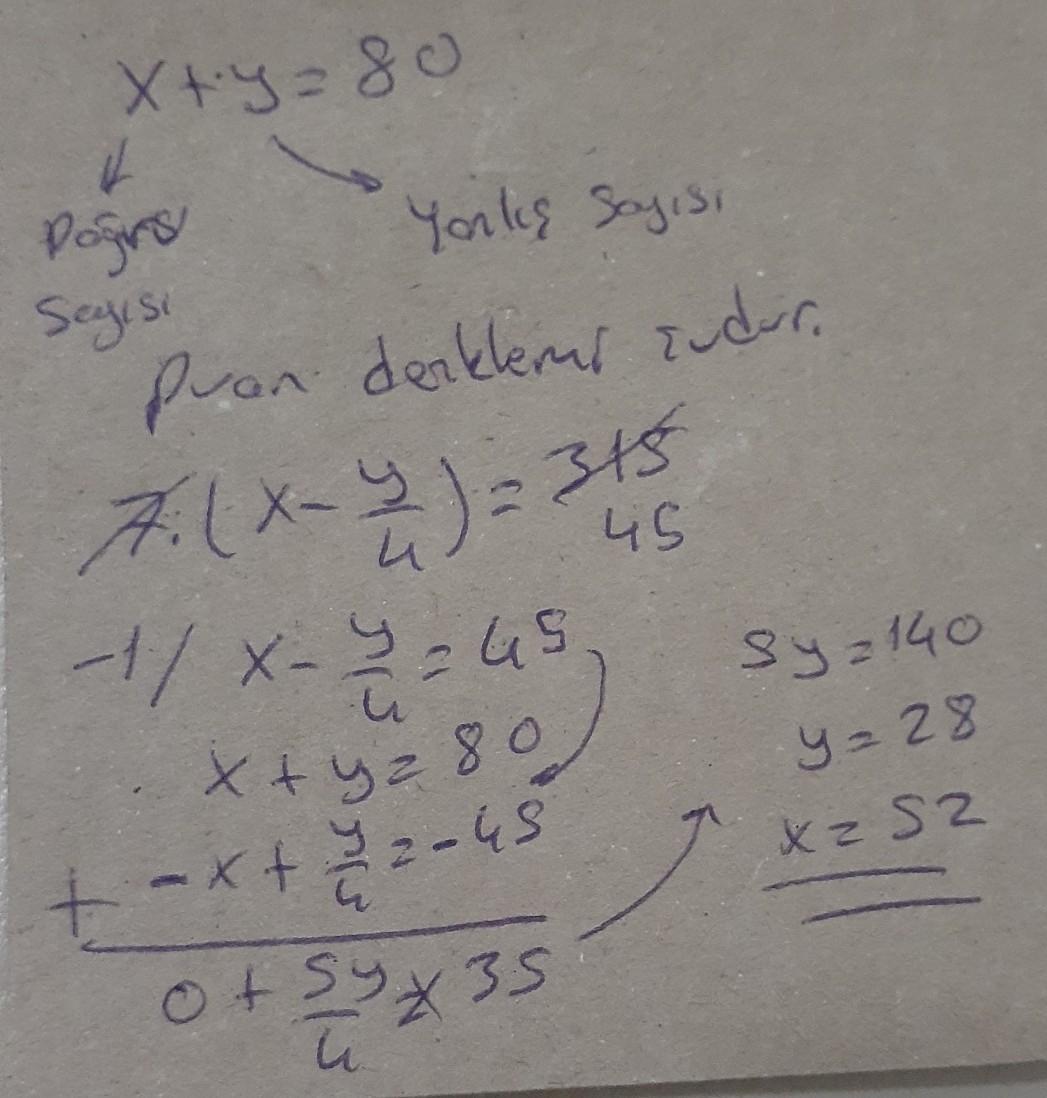 x+y=80
Doğru
Sayısı
Yanlış Sayısı
Puan denklemi şudur.
7.(x-y/4)=315
45
-1/ x-y/4=45
x+y=80
-x+y/4=-45
+
0+5y/4=35
5y=140
y=28
x=52